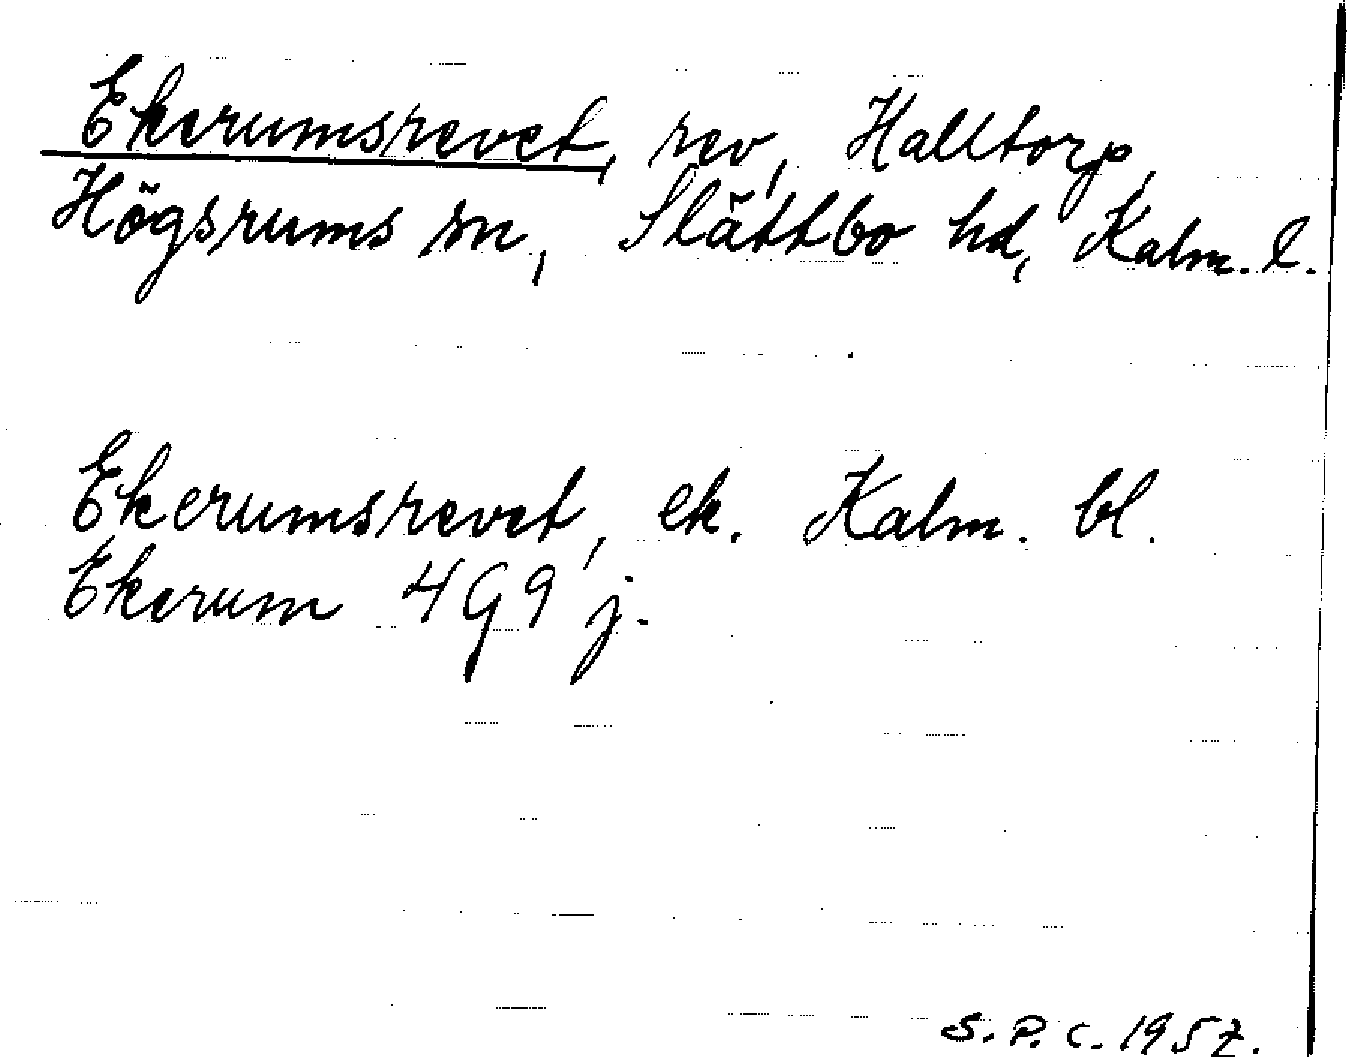 Ekerumsrevet, rev, Halltorp,
Högsrums sn, Slättbo hd, Kalm. l.
Ekerumsrevet, ek. Kalm. bl.
Ekerum 4G9j.
S.P.C. 1957.